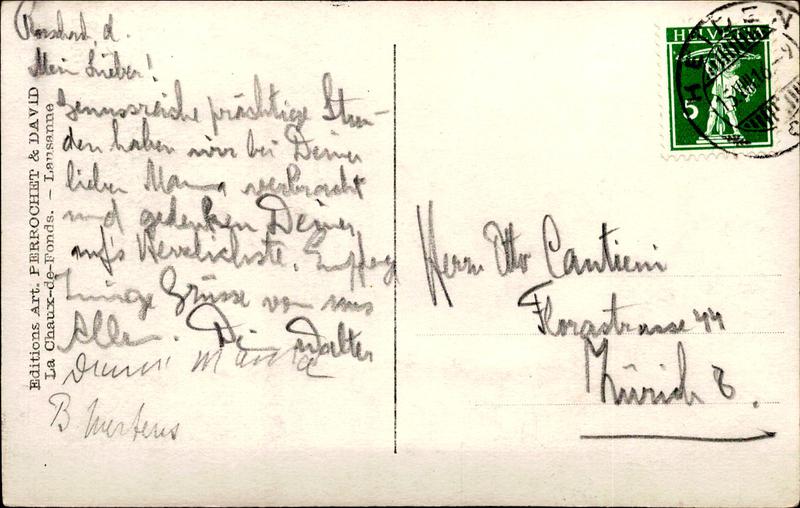 Mein Lieber!
Genussreiche prächtige Stun-
den haben wir bei Deiner
lieben Mama verbracht
und gedenken Deiner
auf's Herzlichste. Empfang
innige Grüsse von uns
Allen. Dein Walter
Deine Mama
B Mertens
Editions Art. PERROCHET & DAVID
La Chaux-de-Fonds. – Lausanne
HELVETIA
5
HEIDEN
Herrn Otto Cantieni
Florastrasse 44
Zürich 8.